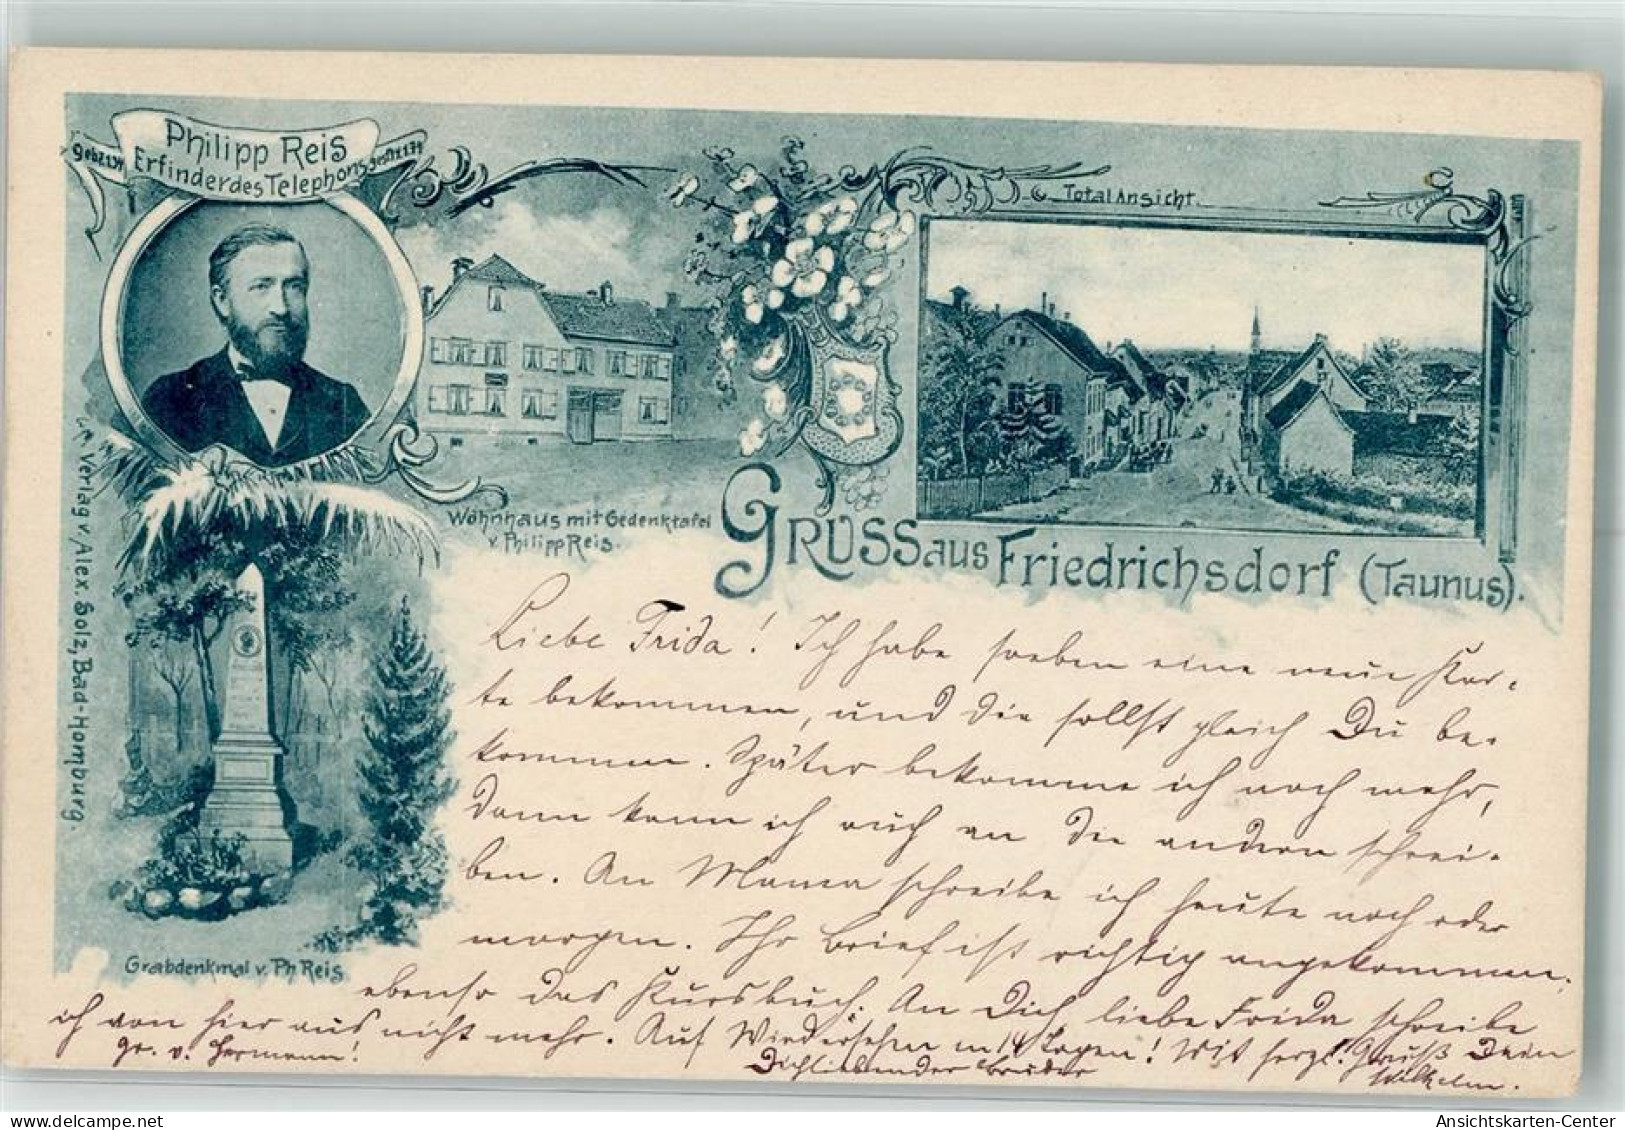 Philipp Reis
Erfinder des Telephons
Total Ansicht.
Wohnhaus mit Gedenktafel
v. Philipp Reis.
Gruss aus Friedrichsdorf (Taunus).
Verlag v. Alex. Solz, Bad-Homburg.
Grabdenkmal v. Ph Reis
Liebe Frida! Ich habe soeben eine neue Kar-
te bekommen, und die sollst gleich Du be-
kommen. Später bekomme ich noch mehr,
dann kann ich auch an die andern schrei-
ben. An Mama schreibe ich heute noch oder
morgen. Ihr Brief ist richtig angekommen,
ebenso das Kursbuch. An Dich, liebe Frida schreibe
ich von hier aus nicht mehr. Auf Wiedersehn in 14 Tagen! Mit herzl. Gruß Dein
Gr. v. Hermann!
Dichliebender Bruder
Wilhelm.
Ansichtskarten-Center